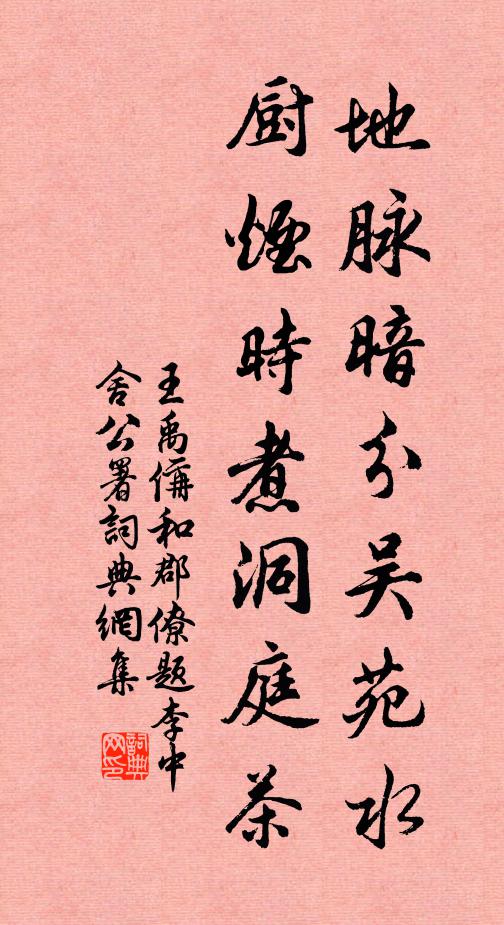 地脉暗分吴苑水
厨煙時煮洞庭茶
王禹偁和郡僚题李中
舍公署詞典網集
詞典
网印